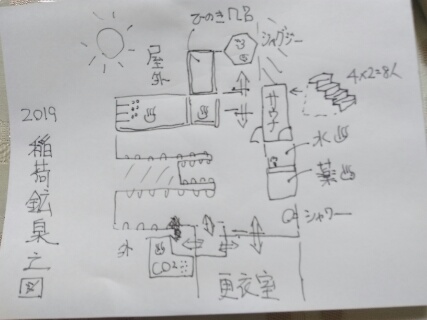 ひのき風呂
ジャグジー
屋外
サウナ
4×2=8人
水
薬
シャワー
外
CO2
更衣室
2019 稲荷鉱泉之図